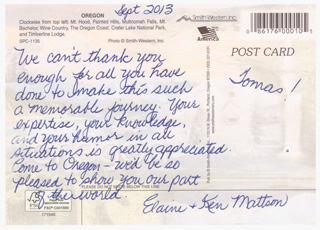 Sept 2013
OREGON
Clockwise from top left, Mt. Hood, Painted Hills, Multnomah Falls, Mt.
Bachelor, Wine Country, The Oregon Coast, Crater Lake National Park,
and Timberline Lodge.
SPC-1135
Photo © Smith-Western, Inc.
Smith-Western Inc.
0 86176 00010 1
POST CARD
We can't thank you
enough for all you have
done to make this such
a memorable journey. Your
expertise, your knowledge,
and your humor in all
situations is greatly appreciated.
Come to Oregon - we'd be so
pleased to show you our part
of the world.
Elaine + Ken Mattson
Tomas!
PLEASE DO NOT WRITE BELOW THIS LINE